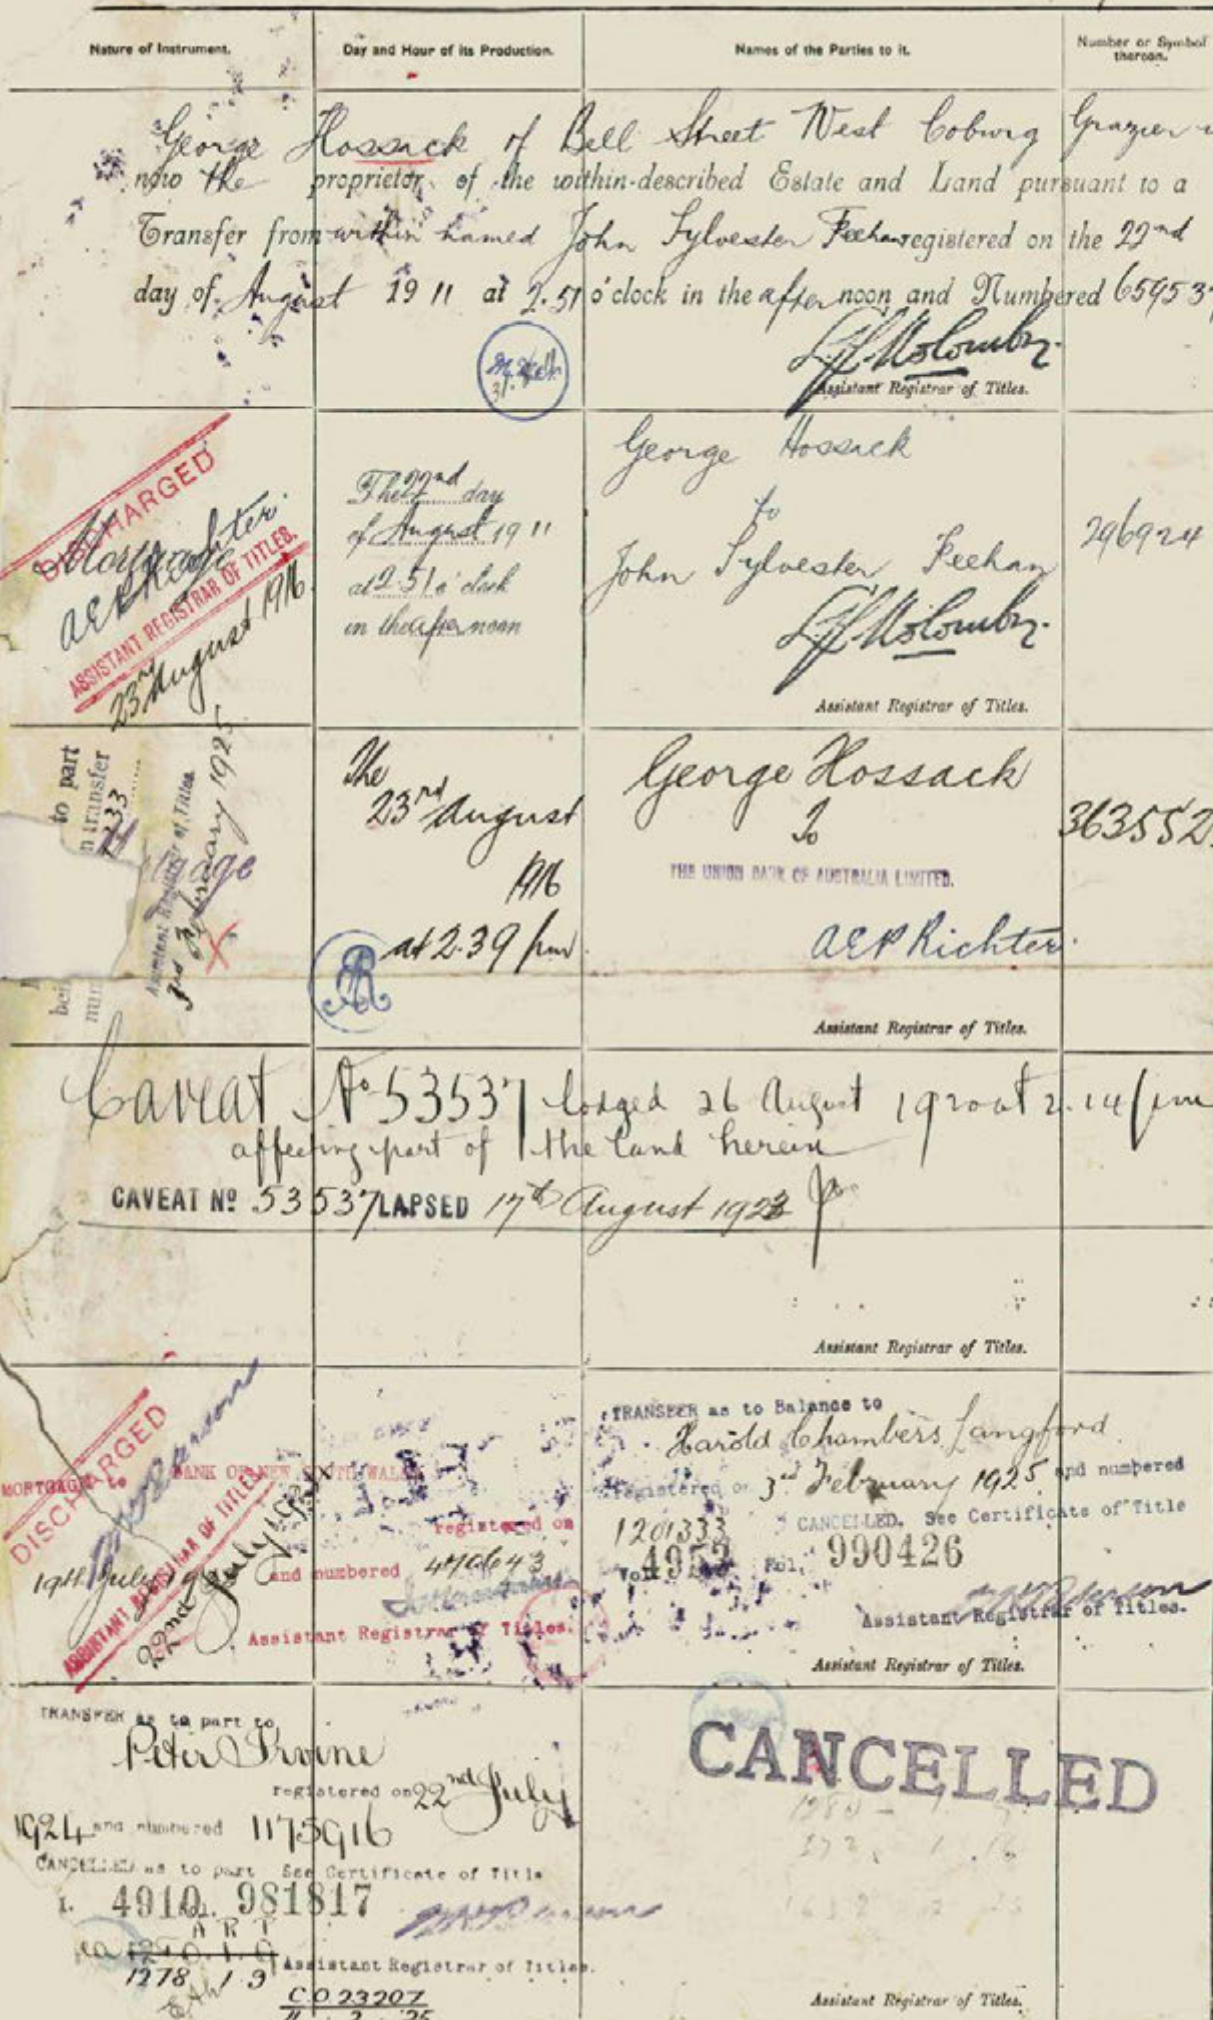 Nature of Instrument.
Day and Hour of its Production.
Names of the Parties to it.
Number or Symbol thereon.
George Hossack of Bell Street West Coburg Grazier is
now the proprietor of the within-described Estate and Land pursuant to a
Transfer from within named John Sylvester Feehan registered on the 22nd
day of August 1911 at 2.51 o'clock in the afternoon and Numbered 659537
Assistant Registrar of Titles.
DISCHARGED
Mortgage
AEP Richter
ASSISTANT REGISTRAR OF TITLES.
23rd August 1916
The 22nd day
of August 1911
at 2.51 o'clock
in the afternoon
George Hossack
to
John Sylvester Feehan
Assistant Registrar of Titles.
296924
to part
n transfer
333
Assistant Registrar of Titles
3rd February 1925
gage
bei
num
The
23rd August
1916
at 2.39 pm
George Hossack
To
THE UNION BANK OF AUSTRALIA LIMITED.
AEP Richter
Assistant Registrar of Titles.
363552
Caveat No 53537 lodged 26 August 1920 at 2.14 pm
affecting part of the land herein
CAVEAT No 53537 LAPSED 17th August 1923
Assistant Registrar of Titles.
DISCHARGED
MORTGAGE to BANK OF NEW SOUTH WALES
registered on
19th July
and numbered 470643
Assistant Registrar of Titles.
ASSISTANT REGISTRAR OF TITLES
22nd July
TRANSFER as to Balance to
Harold Chambers Langford
registered on 3rd February 1925 and numbered
1201333 CANCELLED. See Certificate of Title
Vol. Fol. 990426
Assistant Registrar of Titles.
Assistant Registrar of Titles.
TRANSFER as to part to
Peter Irvine
registered on 22nd July
1924 and numbered 1175916
CANCELLED as to part See Certificate of Title
4910 981817
A R P
1278 1 9
Assistant Registrar of Titles.
C.O 23207
CANCELLED
Assistant Registrar of Titles.